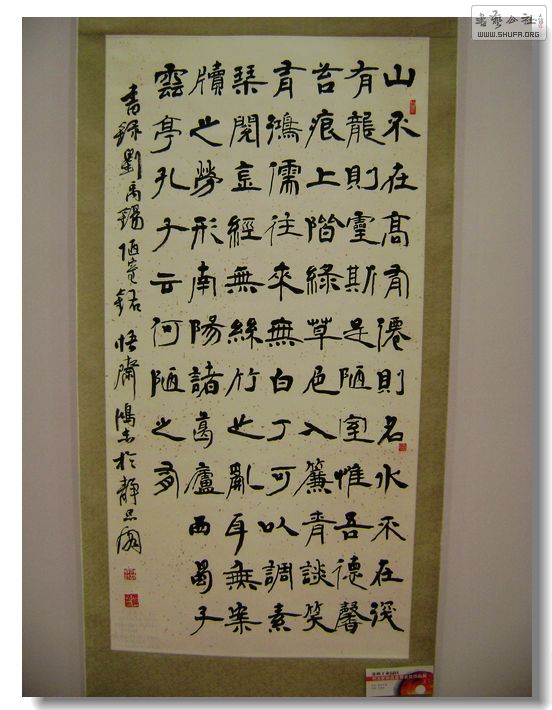 書藝公社
WWW.SHUFA.ORG
山不在高有僊則名水不在深
有龍則靈斯是陋室惟吾德馨
苔痕上階綠草色入簾青談笑
有鴻儒往來無白丁可以調素
琴閱金經無絲竹之亂耳無案
牘之勞形南陽諸葛廬西蜀子
雲亭孔子云何陋之有
書錄劉禹錫陋室銘悟齋鴻志於靜思閣